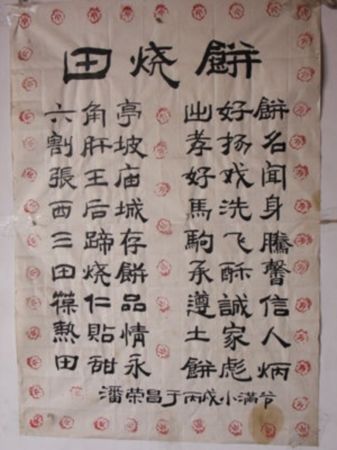 田烧餅
六角亭 出好餅
割肝坡 孝扬名
張王庙 好戏聞
西后城 馬洗身
三蹄存 駒飞騰
田烧餅 承酥馨
葆仁品 遵誠信
熱貼情 土家人
田甜永 餅彪炳
潘荣昌于丙戌小满